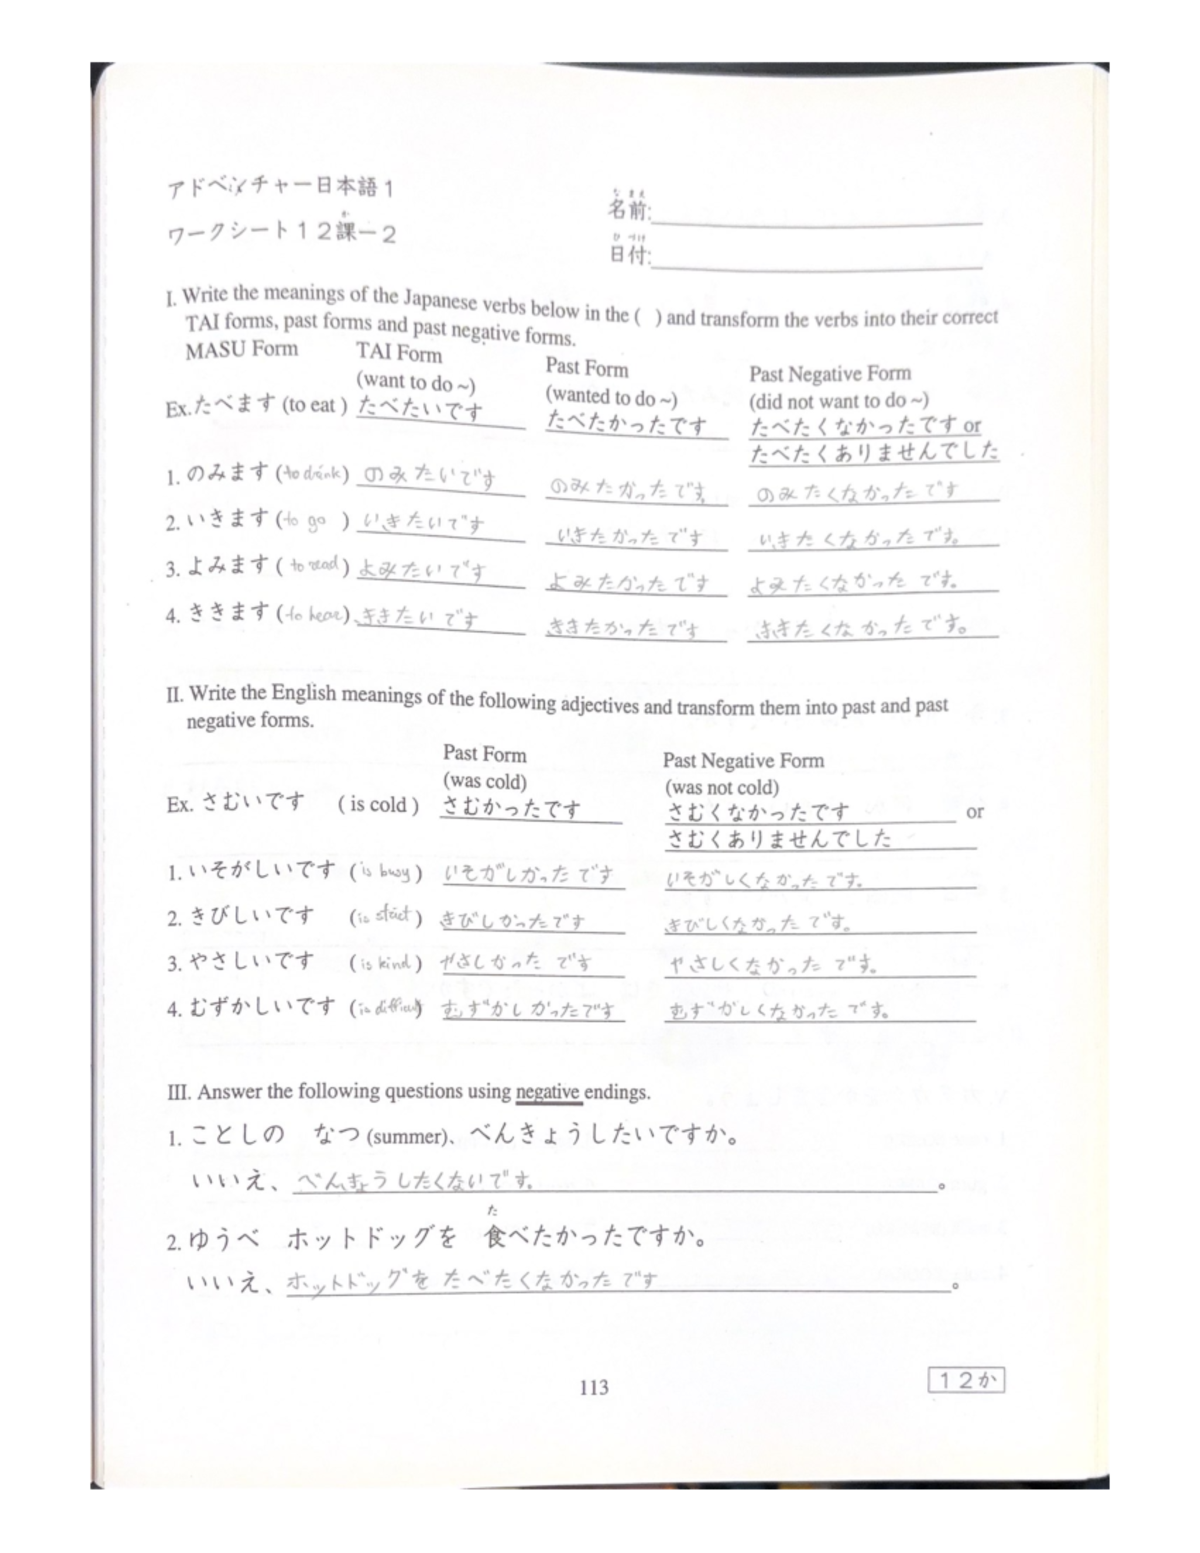 アドベンチャー日本語1
なまえ
名前:
か
ワークシート12課ー2
ひづけ
日付:
I. Write the meanings of the Japanese verbs below in the ( ) and transform the verbs into their correct
TAI forms, past forms and past negative forms.
MASU Form TAI Form Past Form Past Negative Form
(want to do ~) (wanted to do ~) (did not want to do ~)
Ex.たべます (to eat ) たべたいです たべたかったです たべたくなかったです or
たべたくありませんでした
1. のみます (to drink) のみたいです のみたかったです のみたくなかったです
2. いきます (to go ) いきたいです いきたかったです いきたくなかったです。
3. よみます ( to read ) よみたいです よみたかったです よみたくなかったです。
4. ききます (to hear) ききたいです ききたかったです ききたくなかったです。
II. Write the English meanings of the following adjectives and transform them into past and past
negative forms.
Past Form Past Negative Form
(was cold) (was not cold)
Ex. さむいです ( is cold ) さむかったです さむくなかったです or
さむくありませんでした
1. いそがしいです (is busy ) いそがしかったです いそがしくなかったです。
2. きびしいです (is strict ) きびしかったです きびしくなかったです。
3. やさしいです (is kind ) やさしかった です やさしくなかった です。
4. むずかしいです (is difficult) むずかしかったです むずがしくなかった です。
III. Answer the following questions using negative endings.
1. ことしの なつ (summer)、べんきょうしたいですか。
いいえ、べんきょうしたくないです。。
た
2. ゆうべ ホットドッグを 食べたかったですか。
いいえ、ホットドッグを たべたくなかったです。
113
12か